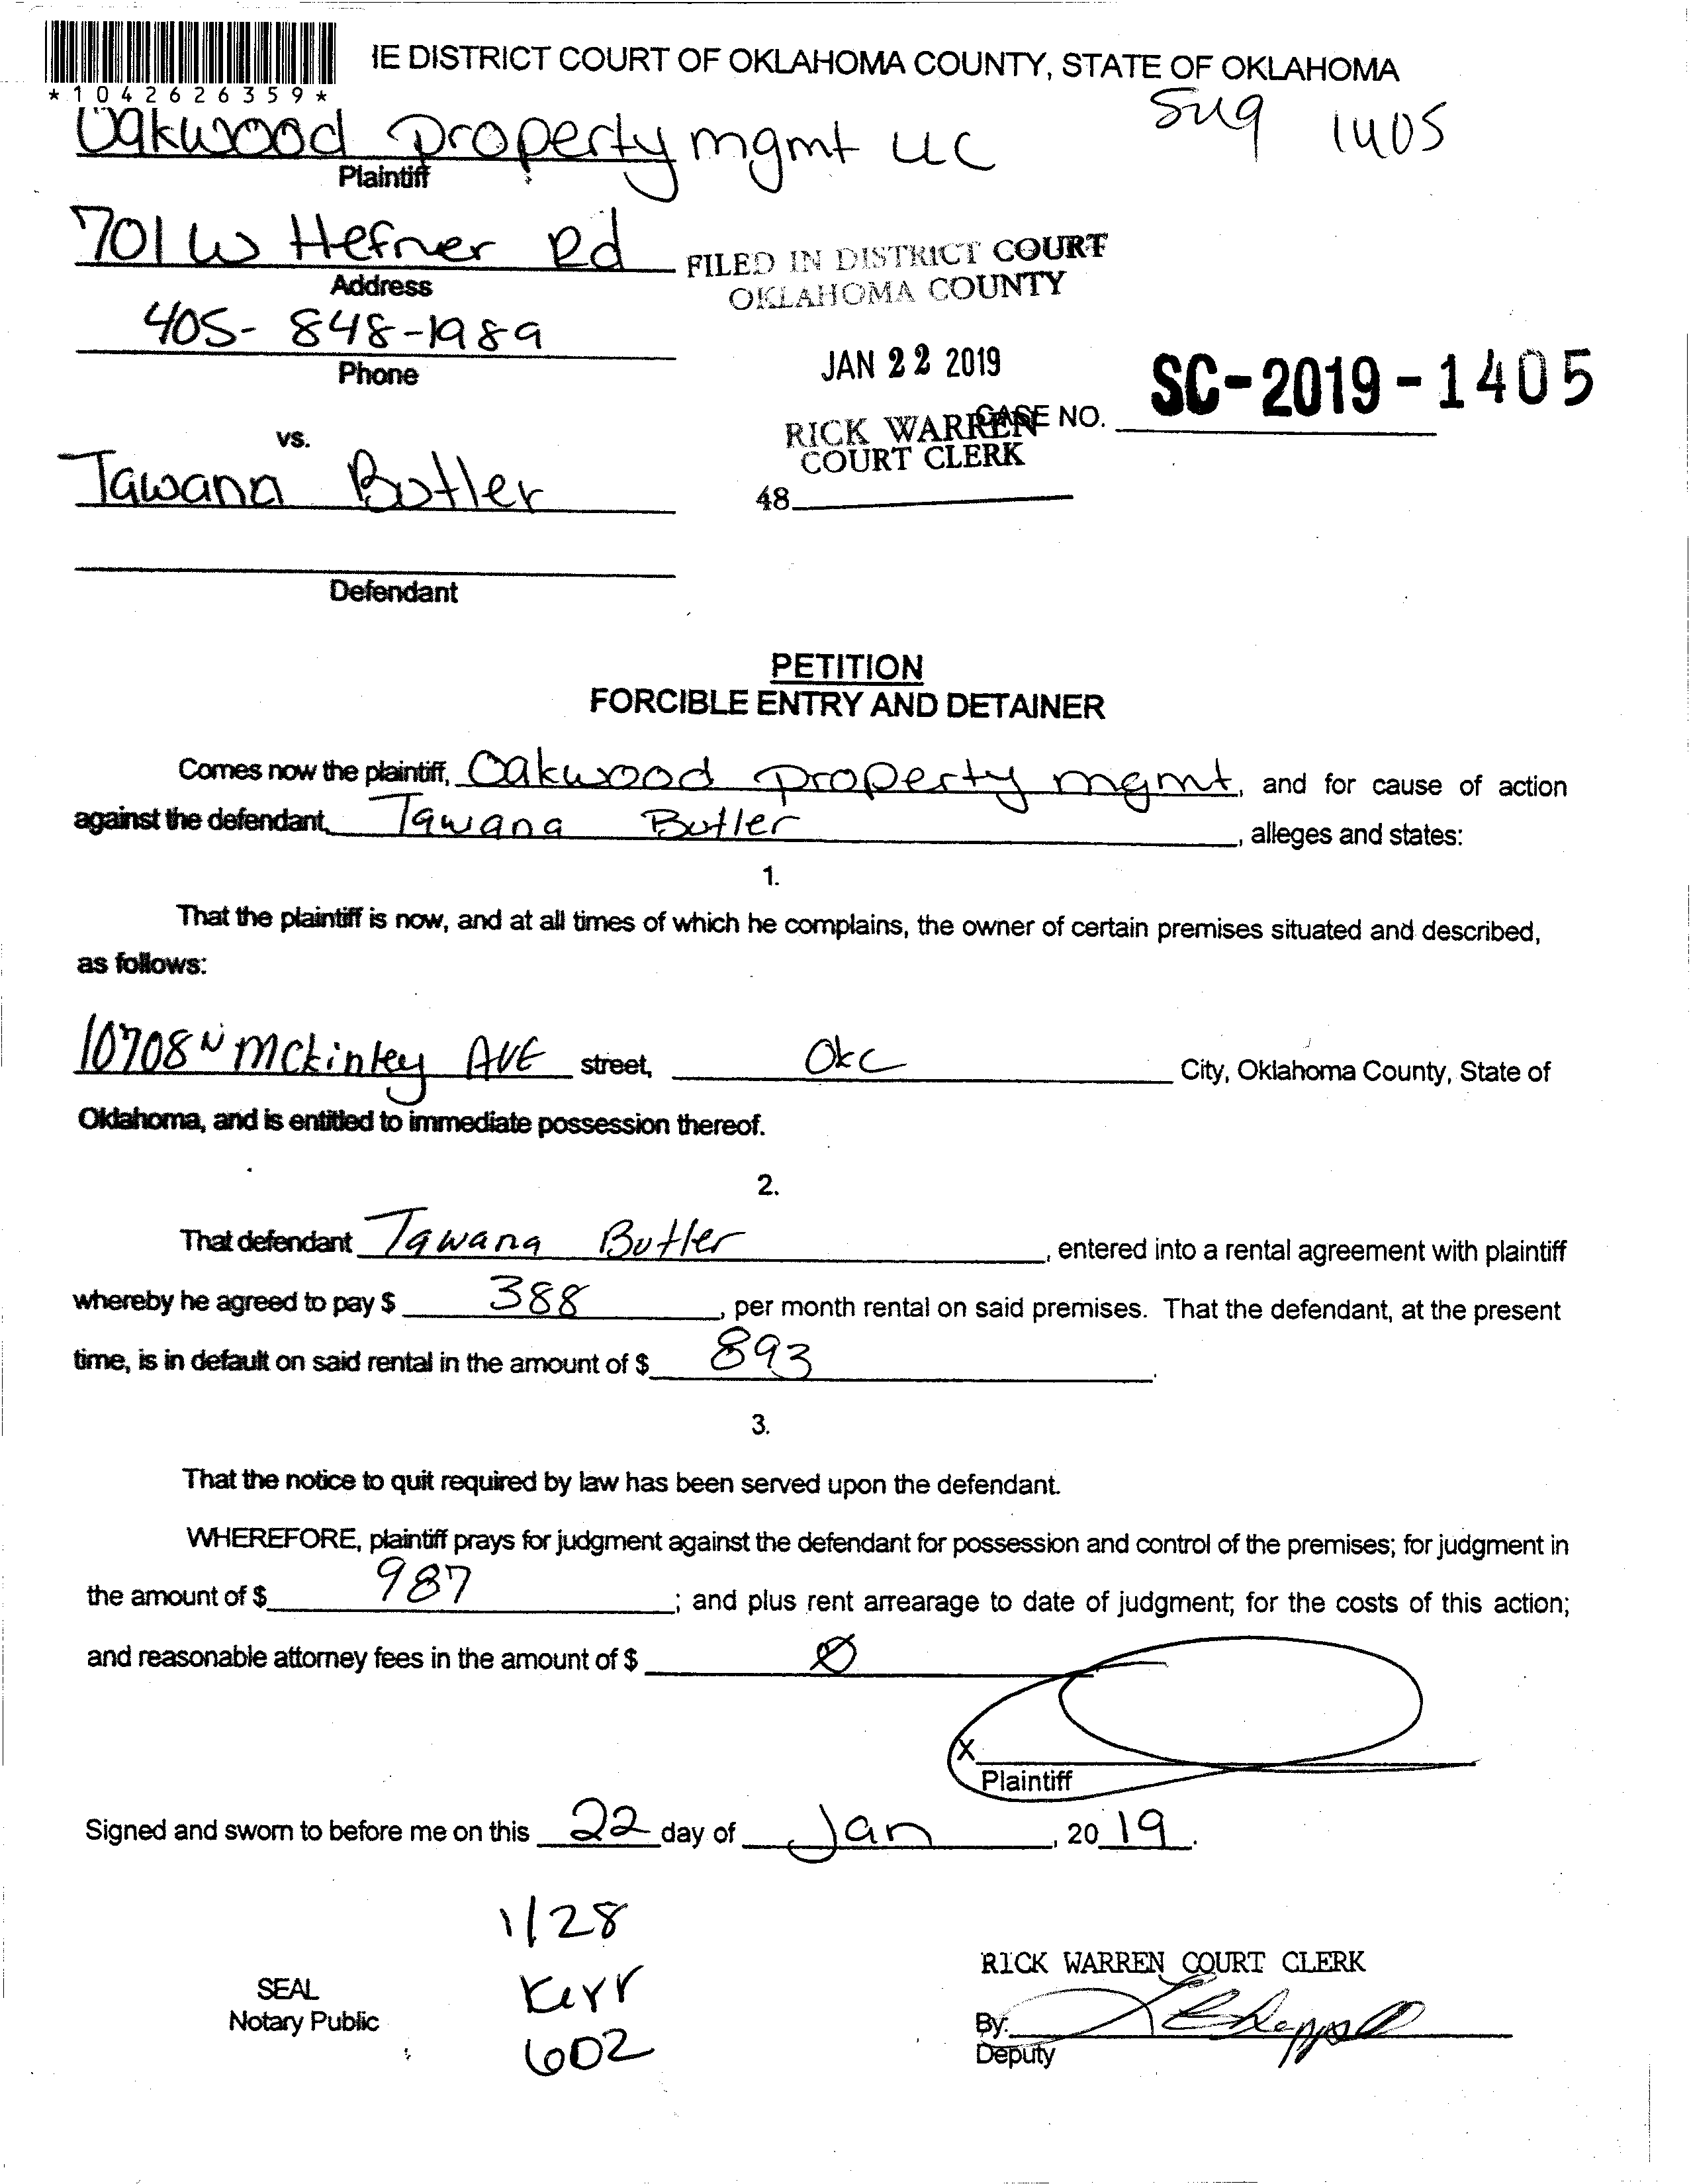 IE DISTRICT COURT OF OKLAHOMA COUNTY, STATE OF OKLAHOMA
*1042626359*
Oakwood property mgmt LLC
1405
Plaintiff
701 W Hefner Rd
Address
FILED IN DISTRICT COURT
OKLAHOMA COUNTY
405-848-1989
Phone
JAN 22 2019
SC-2019-1405
CASE NO.
RICK WARREN
COURT CLERK
48
vs.
Tawana Butler
Defendant
PETITION
FORCIBLE ENTRY AND DETAINER
Comes now the plaintiff, Oakwood property mgmt, and for cause of action
against the defendant, Tawana Butler, alleges and states:
1.
That the plaintiff is now, and at all times of which he complains, the owner of certain premises situated and described,
as follows:
10708 N McKinley AVE street, OKC City, Oklahoma County, State of
Oklahoma, and is entitled to immediate possession thereof.
2.
That defendant Tawana Butler, entered into a rental agreement with plaintiff
whereby he agreed to pay $ 388, per month rental on said premises. That the defendant, at the present
time, is in default on said rental in the amount of $ 893.
3.
That the notice to quit required by law has been served upon the defendant.
WHEREFORE, plaintiff prays for judgment against the defendant for possession and control of the premises; for judgment in
the amount of $ 987; and plus rent arrearage to date of judgment; for the costs of this action;
and reasonable attorney fees in the amount of $ Ø
X
Plaintiff
Signed and sworn to before me on this 22 day of Jan, 2019.
1/28
Kerr
602
SEAL
Notary Public
RICK WARREN COURT CLERK
By:
Deputy